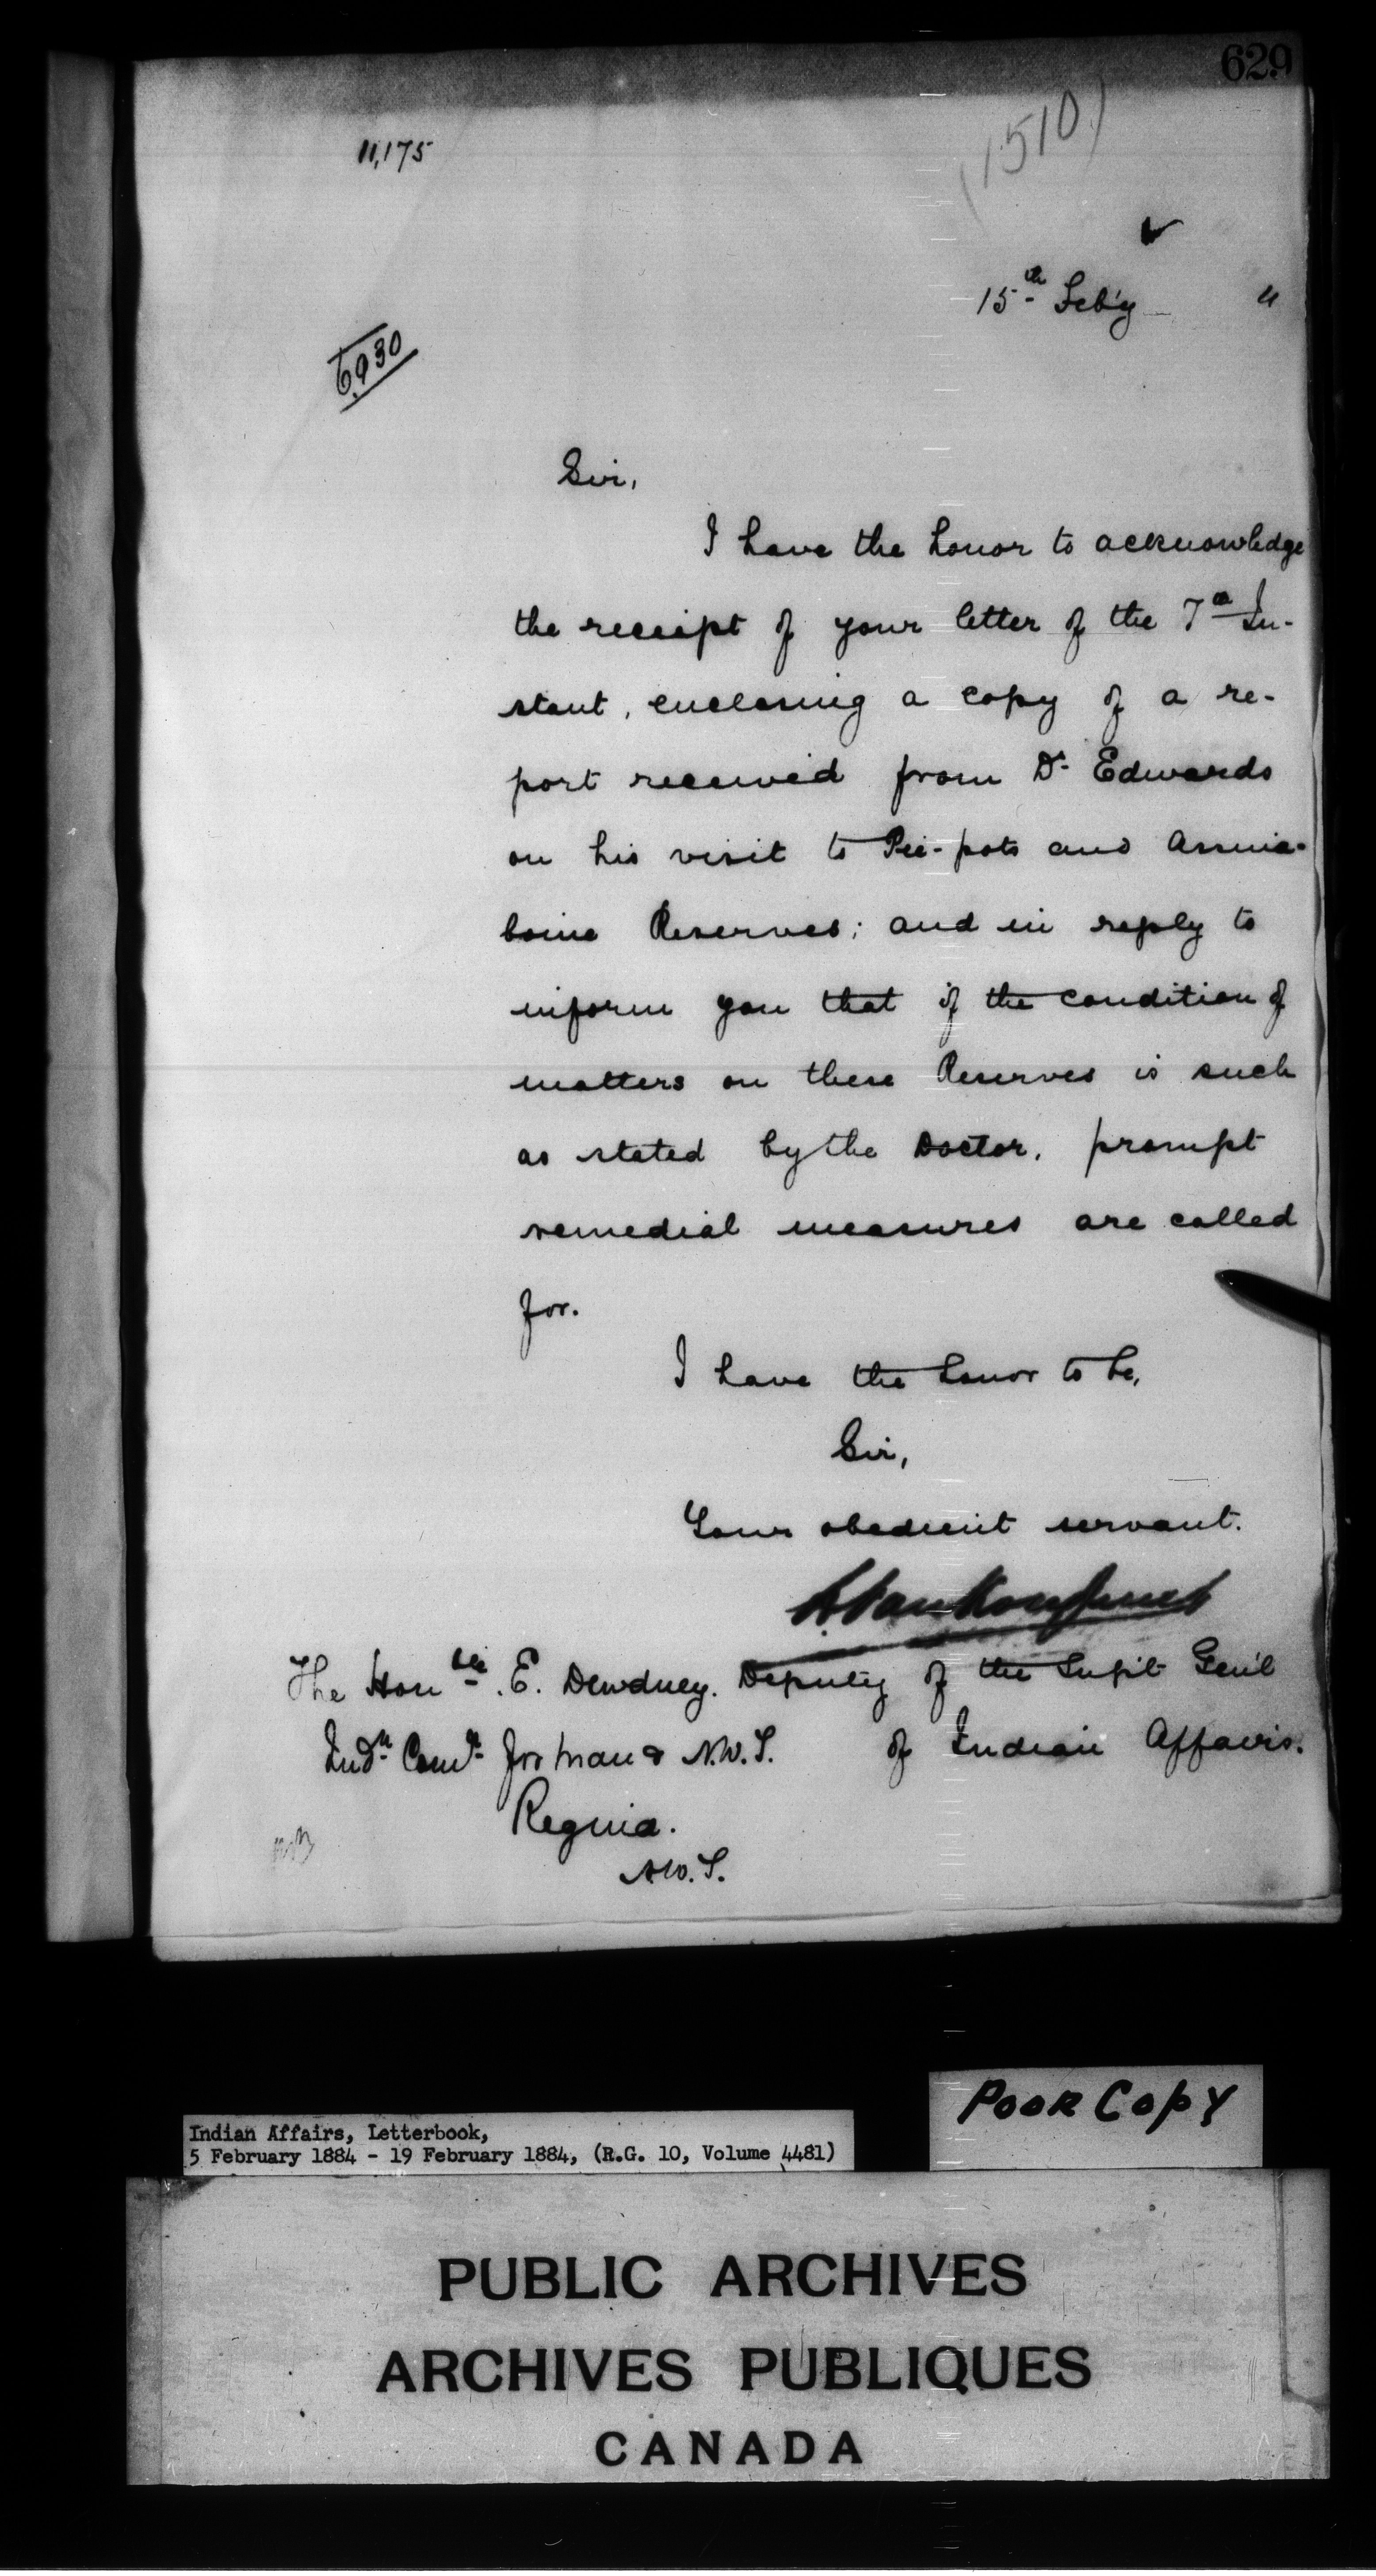 629
11,175
(1510)
15th Feb'y "
6930
Sir,
I have the honor to acknowledge
the receipt of your letter of the 7th In-
stant, enclosing a copy of a re-
port received from Dr Edwards
on his visit to Pie-pots and Assina-
boine Reserves; and in reply to
inform you that if the condition of
matters on these Reserves is such
as stated by the Doctor, prompt
remedial measures are called
for.
I have the honor to be,
Sir,
Your obedient servant.
L. Vankoughnet
The Honble. E. Dewdney. Deputy of the Supt Gen'l
Indn Comr for Man & N.W.T. of Indian Affairs.
Regina.
N.W.T.
Poor Copy
Indian Affairs, Letterbook,
5 February 1884 - 19 February 1884, (R.G. 10, Volume 4481)
PUBLIC ARCHIVES
ARCHIVES PUBLIQUES
CANADA